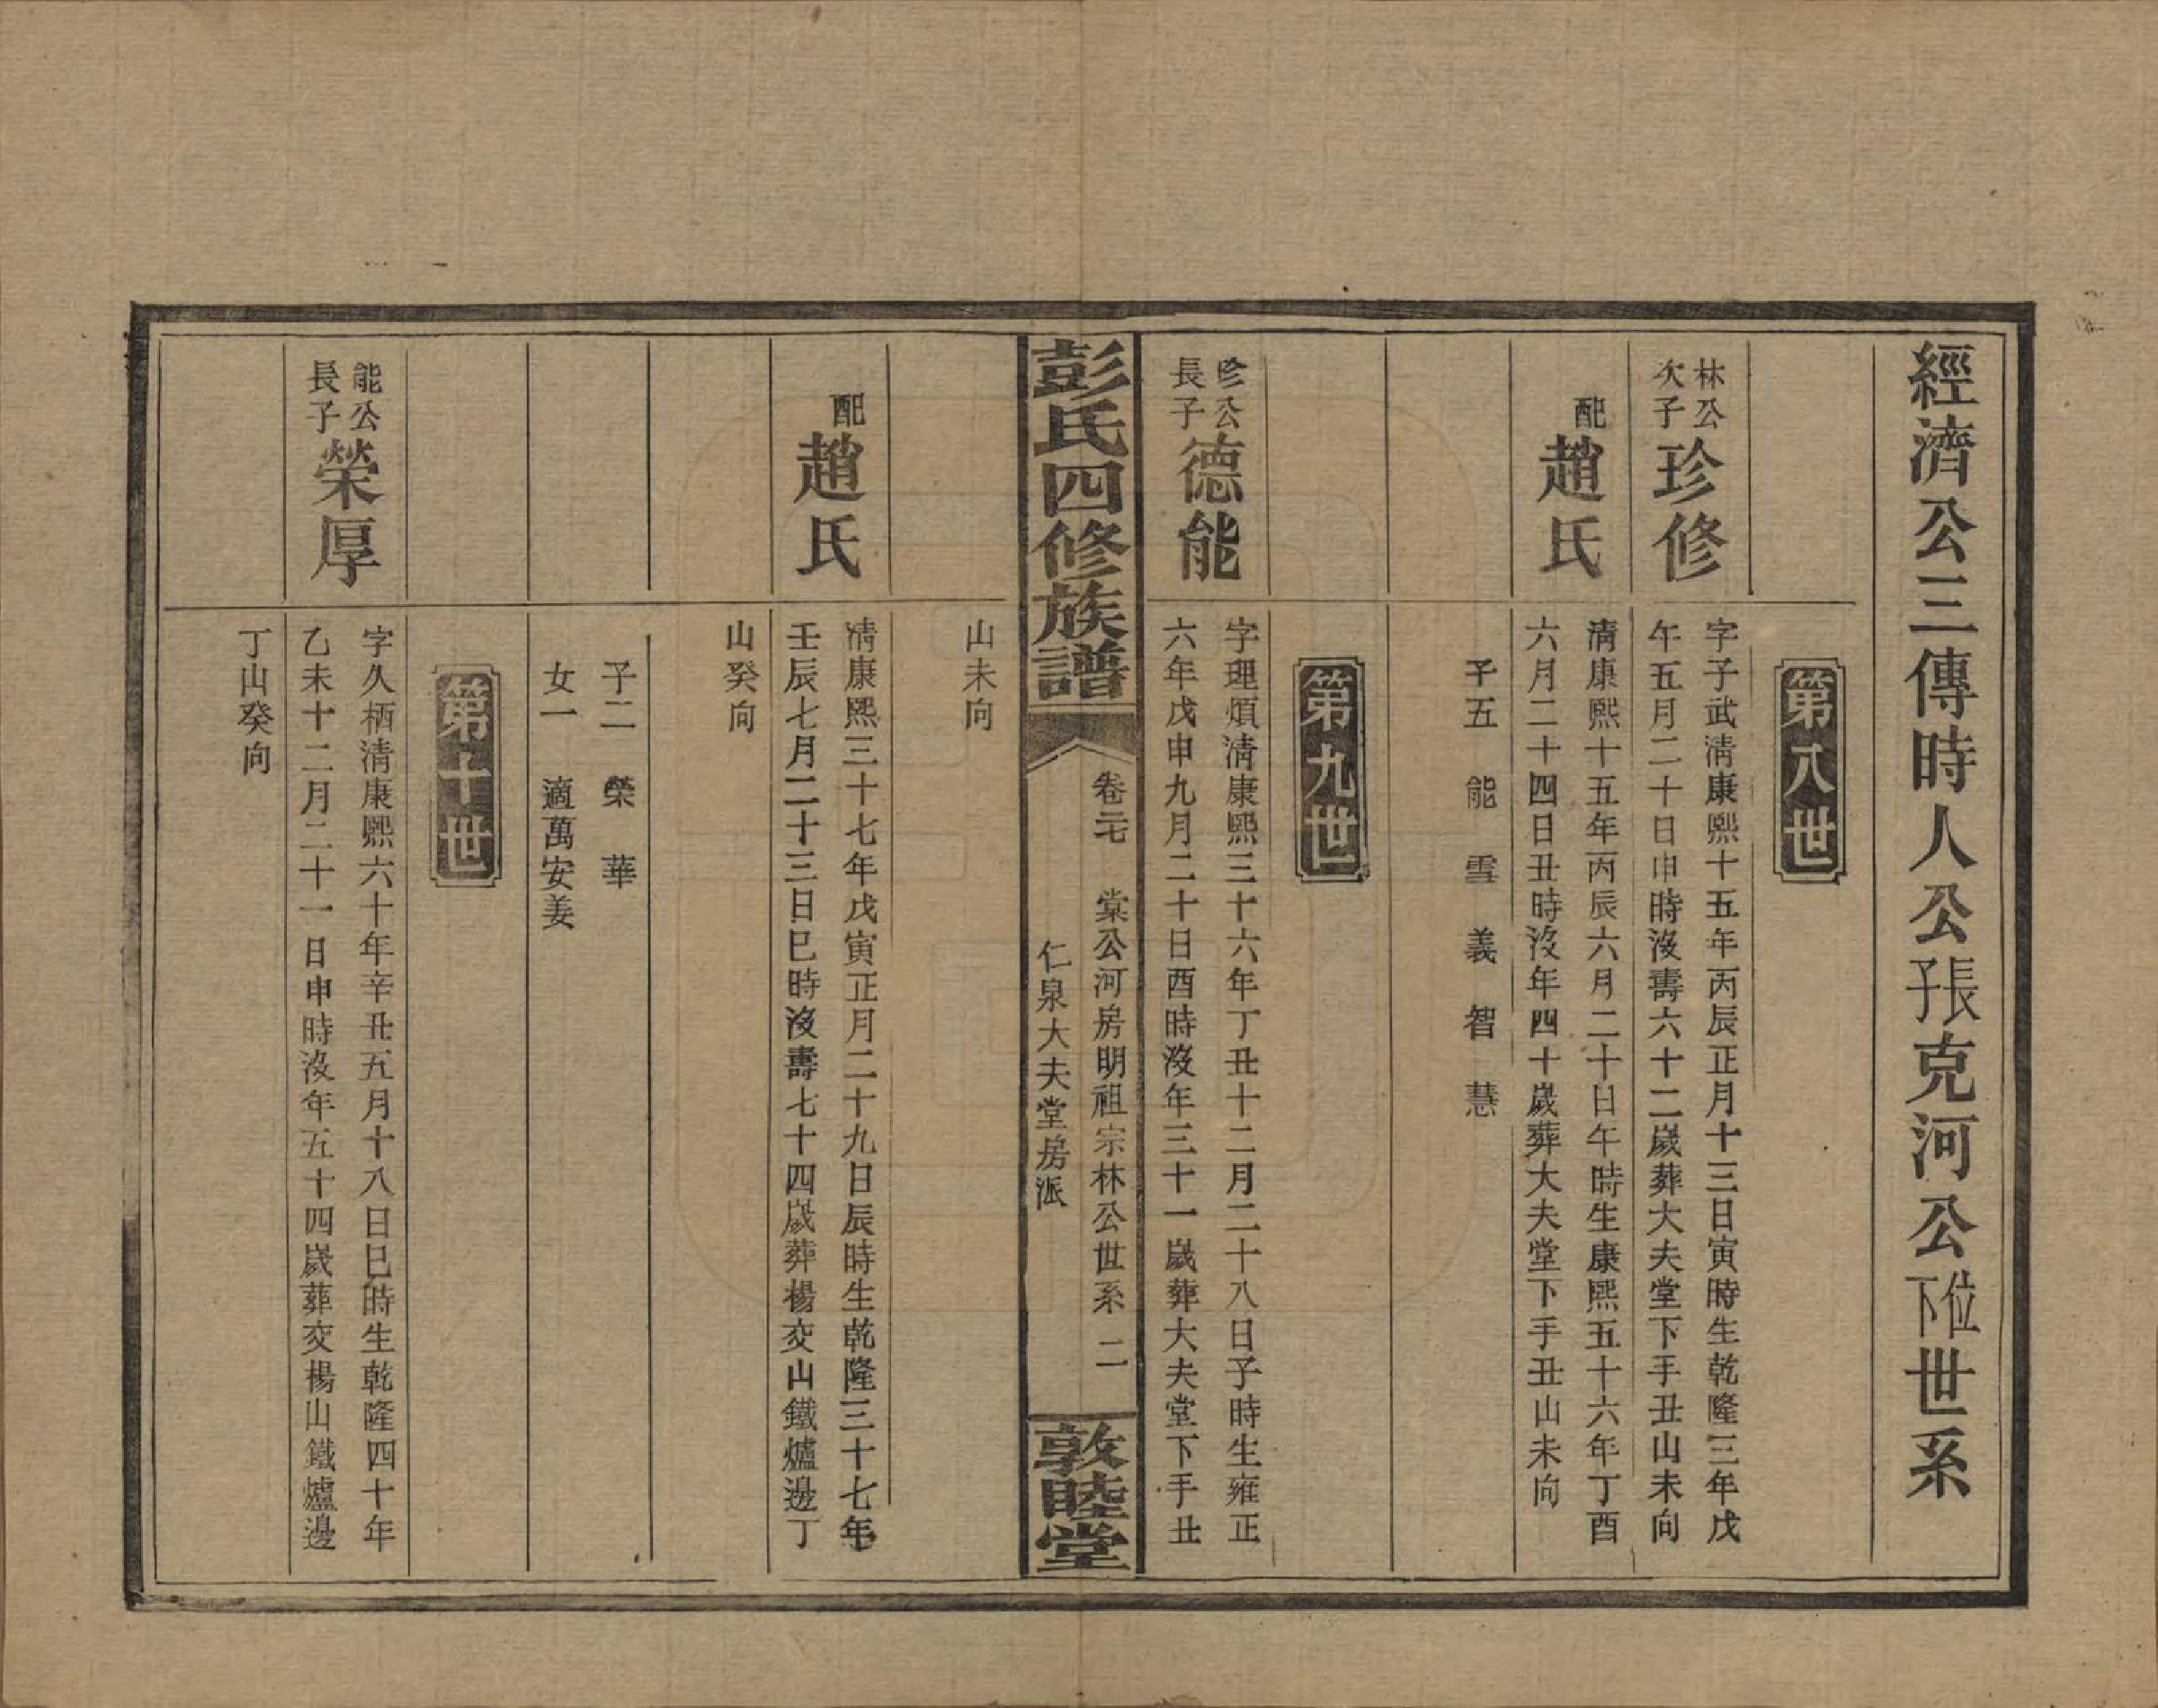 經濟公三傳時人公長子克河公位下世系
第八世
林公
次子
珍修
字子武淸康熙十五年丙辰正月十三日寅時生乾隆三年戊
午五月二十日申時沒壽六十二嵗葬大夫堂下手丑山未向
配
趙氏
淸康熙十五年丙辰六月二十日午時生康熙五十六年丁酉
六月二十四日丑時沒年四十嵗葬大夫堂下手丑山未向
子五 能 雲 義 智 慧
第九世
珍公
長子
德能
字理煩淸康熙三十六年丁丑十二月二十八日子時生雍正
六年戊申九月二十日酉時沒年三十一嵗葬大夫堂下手丑
彭氏四修族譜
卷二七 棠公河房明祖宗林公世系 二
仁泉大夫堂房派
敦睦堂
山未向
配
趙氏
淸康熙三十七年戊寅正月二十九日辰時生乾隆三十七年
壬辰七月二十三日巳時沒壽七十四嵗葬楊交山鐵爐邊丁
山癸向
子二 榮 華
女一 適萬安姜
第十世
能公
長子
榮厚
字久栖淸康熙六十年辛丑五月十八日巳時生乾隆四十年
乙未十二月二十一日申時沒年五十四嵗葬交楊山鐵爐邊
丁山癸向